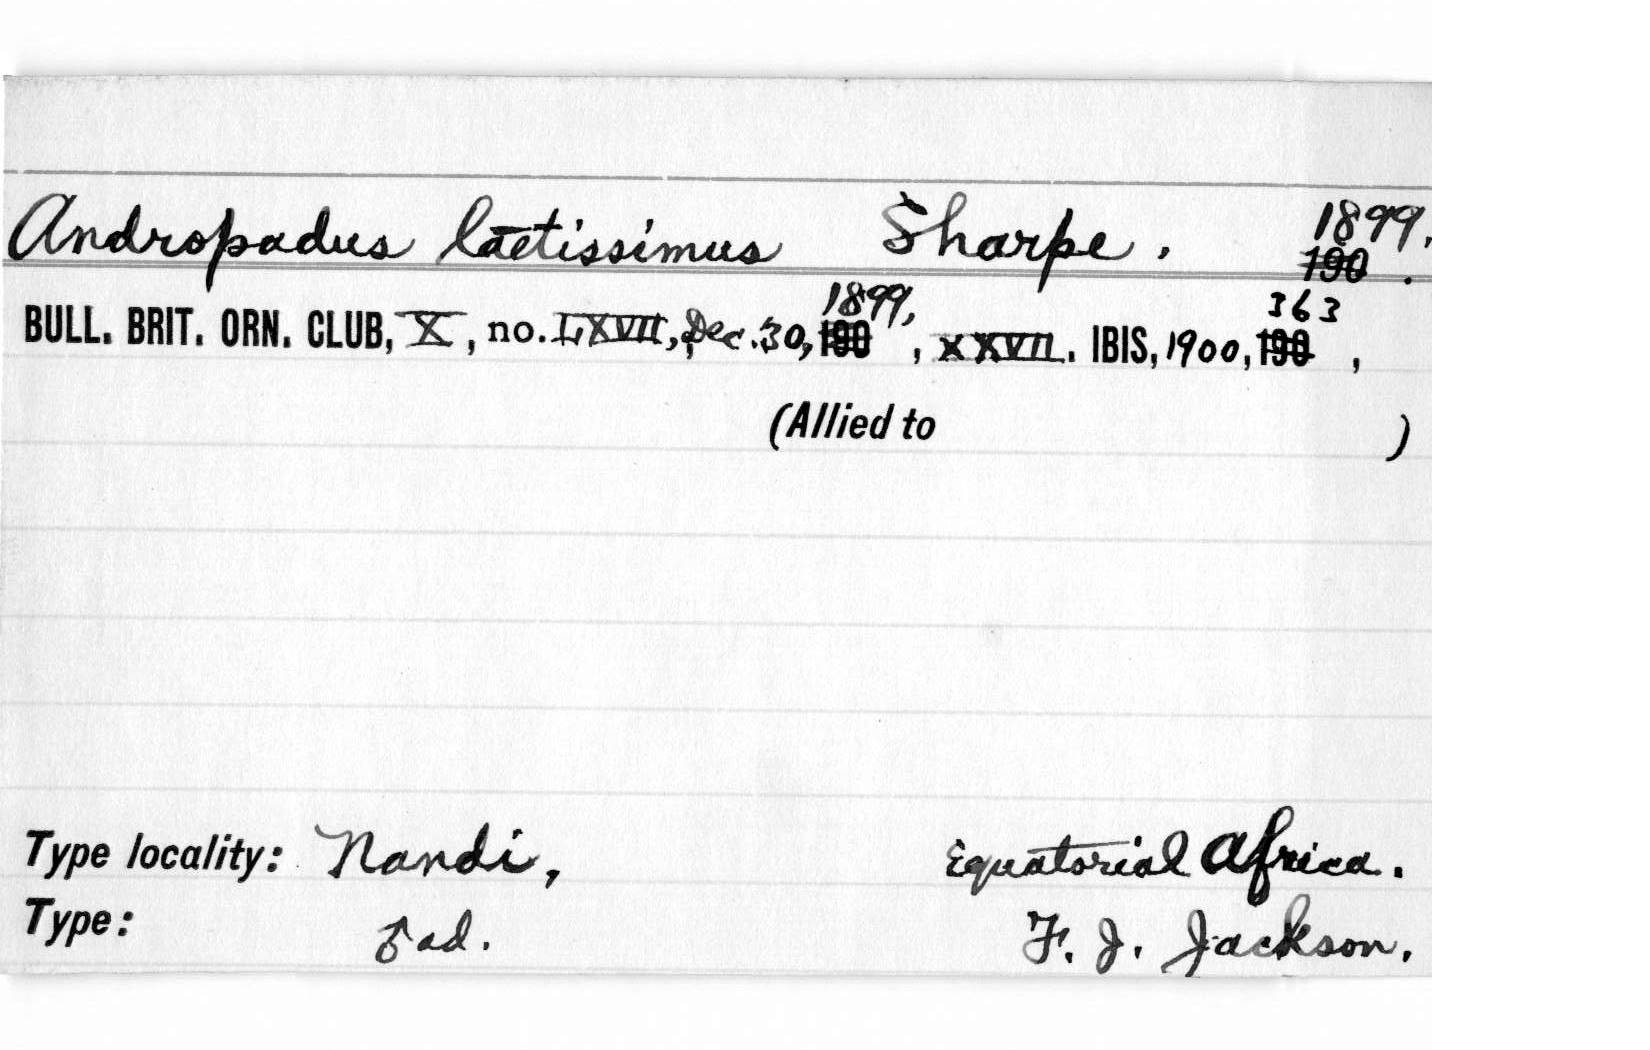 Andropadus laetissimus Sharpe. 1899.
190 .
1899, 363
BULL. BRIT. ORN. CLUB, X, no. LXVII, Dec. 30, 190 , XXVII. IBIS, 1900, 190 ,
(Allied to )
Type locality: Nandi, Equatorial Africa.
Type: ♂ ad. F. J. Jackson.